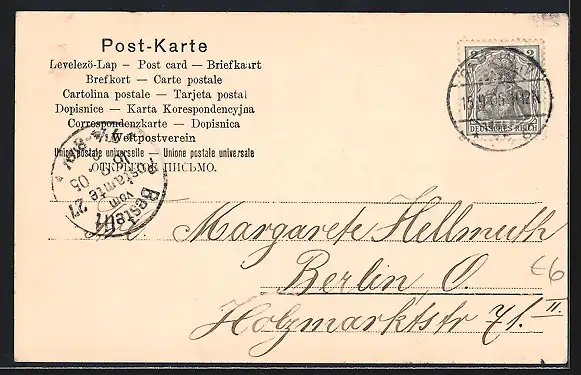 Post-Karte
Levelezö-Lap — Post card — Briefkaart
Brefkort — Carte postale
Cartolina postale — Tarjeta postal
Dopisnice — Karta Korespondencyjna
Correspondenzkarte — Dopisnica
Weltpostverein
Union postale universelle — Unione postale universale
ОТКРЫТОЕ ПИСЬМО.
2 2
DEUTSCHES REICH
Bestellt
vom
Postamte
27
Margarete Hellmuth
Berlin, O.
Holzmarktstr 71. II.
E6